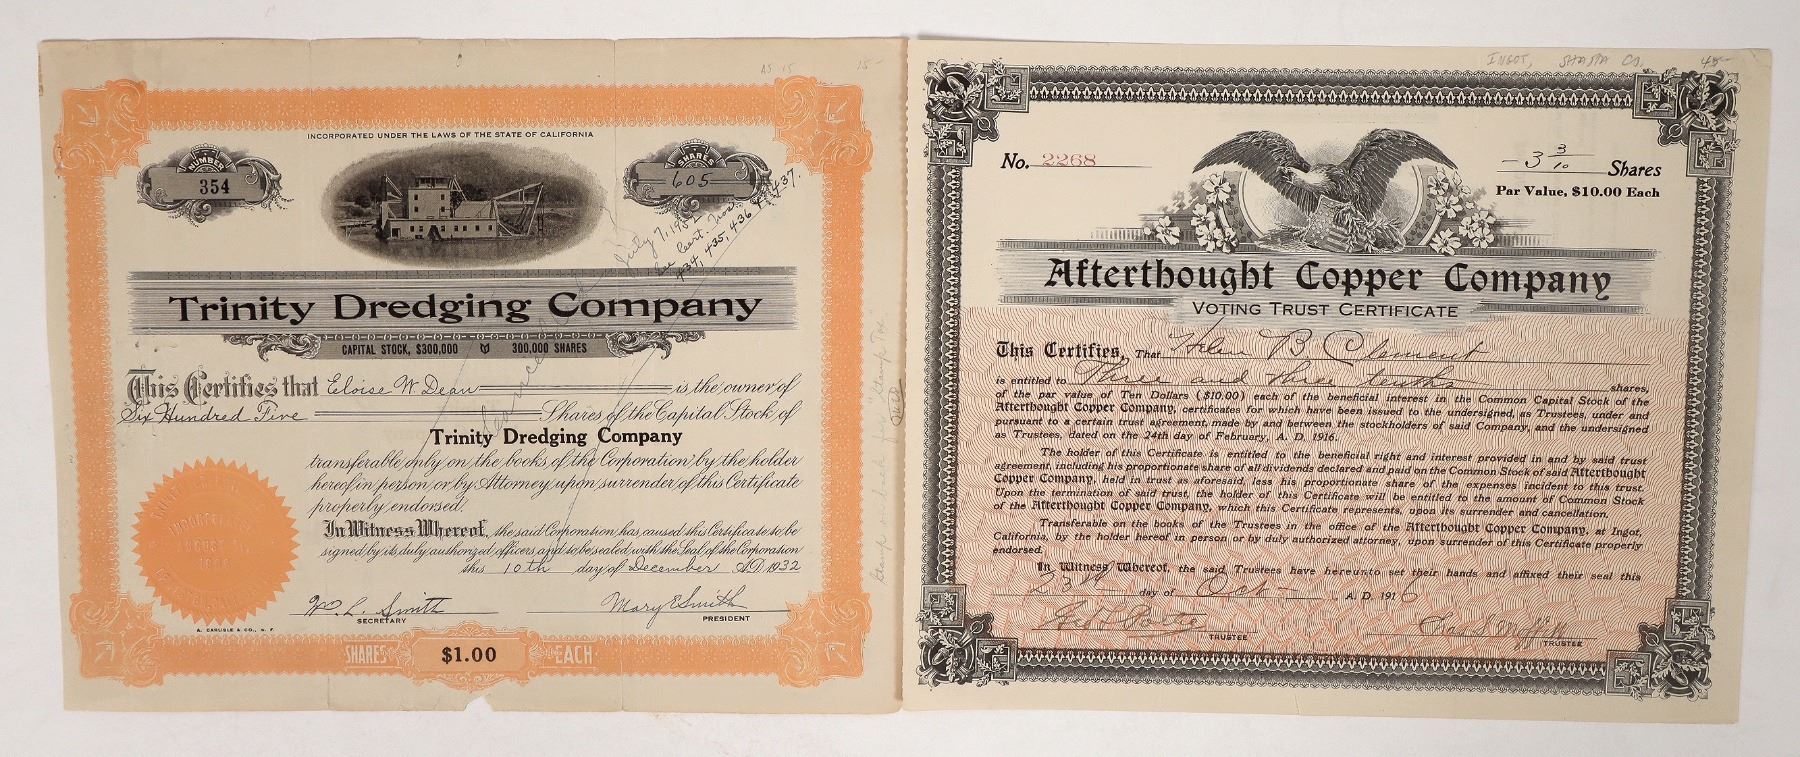 AS 15
15-
INCORPORATED UNDER THE LAWS OF THE STATE OF CALIFORNIA
NUMBER
354
SHARES
605
July 7, 1952
Cert. Nos.
434, 435, 436 & 437.
Trinity Dredging Company
CAPITAL STOCK, $300,000
300,000 SHARES
This Certifies that Eloise W. Dean is the owner of
Six Hundred Five Shares of the Capital Stock of
Trinity Dredging Company
transferable only on the books of the Corporation by the holder
hereof in person or by Attorney upon surrender of this Certificate
properly endorsed.
In Witness Whereof, the said Corporation has caused this Certificate to be
signed by its duly authorized officers and to be sealed with the Seal of the Corporation
this 10th day of December A.D. 1932
W. L. Smith
SECRETARY
Mary E Smith
PRESIDENT
A. CARLISLE & CO., S. F.
SHARES
$1.00
EACH
INGOT, SHASTA CO.
45-
No. 2268
- 3 3/10 Shares
Par Value, $10.00 Each
Afterthought Copper Company
VOTING TRUST CERTIFICATE
This Certifies, That Helen B Clement
is entitled to Three and three tenths shares,
of the par value of Ten Dollars ($10.00) each of the beneficial interest in the Common Capital Stock of the
Afterthought Copper Company, certificates for which have been issued to the undersigned, as Trustees, under and
pursuant to a certain trust agreement, made by and between the stockholders of said Company, and the undersigned
as Trustees, dated on the 24th day of February, A. D. 1916.
The holder of this Certificate is entitled to the beneficial right and interest provided in and by said trust
agreement, including his proportionate share of all dividends declared and paid on the Common Stock of said Afterthought
Copper Company, held in trust as aforesaid, less his proportionate share of the expenses incident to this trust.
Upon the termination of said trust, the holder of this Certificate will be entitled to the amount of Common Stock
of the Afterthought Copper Company, which this Certificate represents, upon its surrender and cancellation.
Transferable on the books of the Trustees in the office of the Afterthought Copper Company, at Ingot,
California, by the holder hereof in person or by duly authorized attorney, upon surrender of this Certificate properly
endorsed.
In Witness Whereof, the said Trustees have hereunto set their hands and affixed their seal this
23rd day of Oct- A. D. 1916
TRUSTEE
TRUSTEE